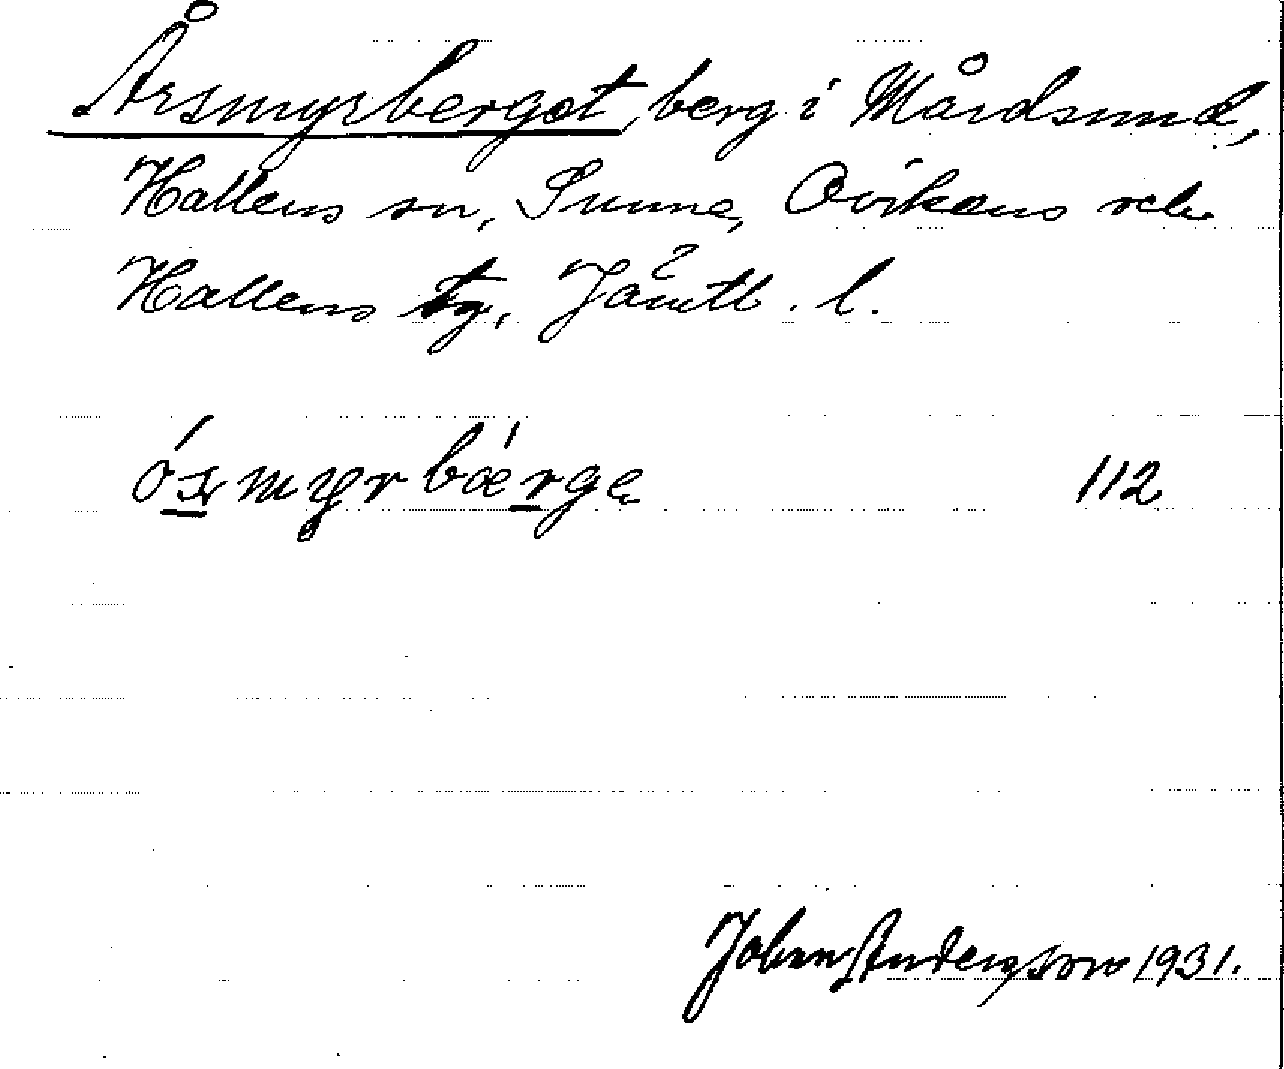 Årsmyrberget, berg i Mårdsund,
Hallens sn, Sunne, Ovikens och
Hallens tg, Jämtl. l.
ó̱s̱myrbæ̀ṟge 112
Johan Anderson 1931.